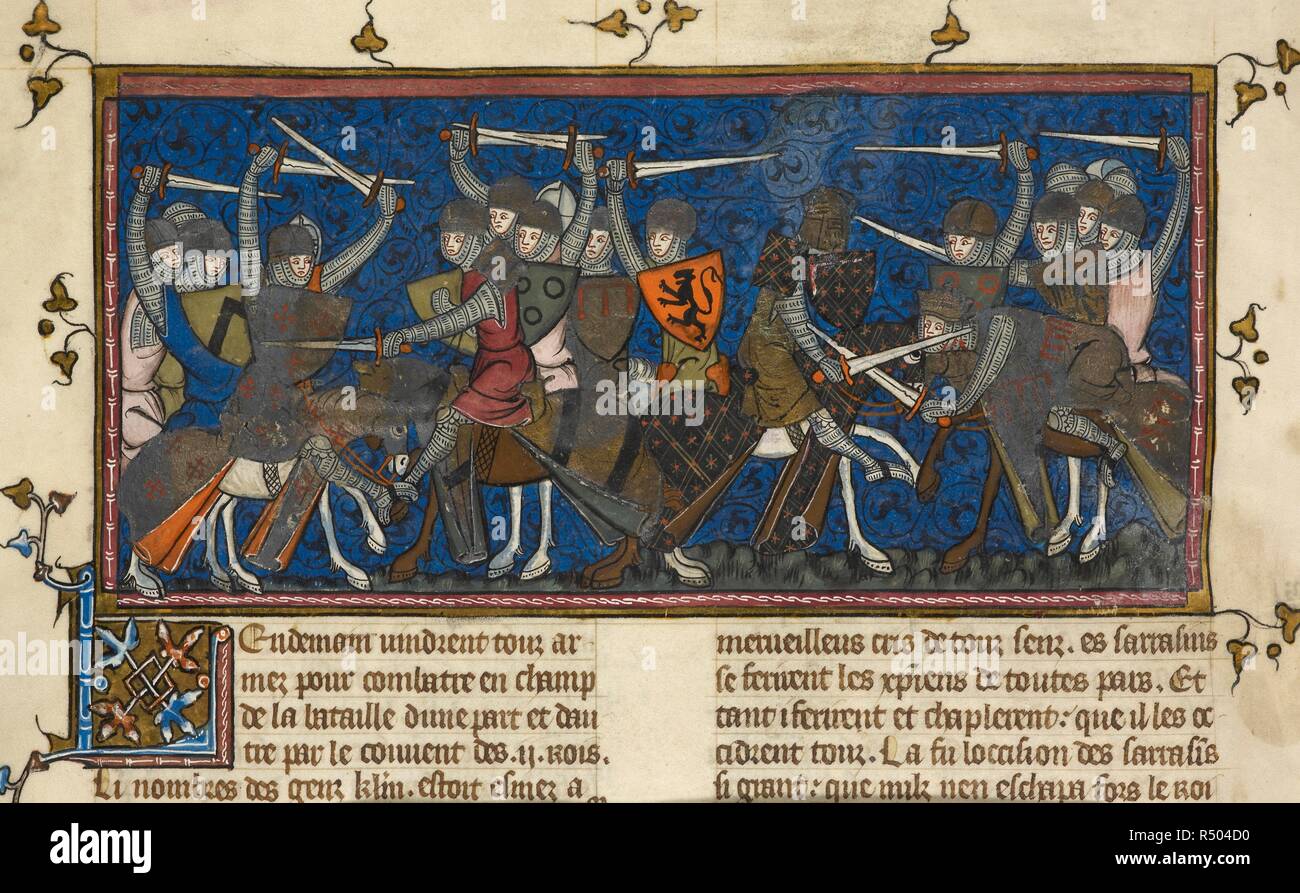 Lendemain vindrent touz ar
mez pour combatre en champ
de la bataille dune part et dau
tre par le couvent des .ij. rois.
Li nombres des genz klm. estoit esmez a
merveilleus cris de touz senz. es sarrasins
se ferirent les xpiens de toutes pars. Et
tant i ferirent et chaplerent: que il les oc
cidrent touz. La fu loccision des sarrasins
si grant: que nulz nen eschapa fors le roi
alamy stock photo
Image ID: R504D0
www.alamy.com